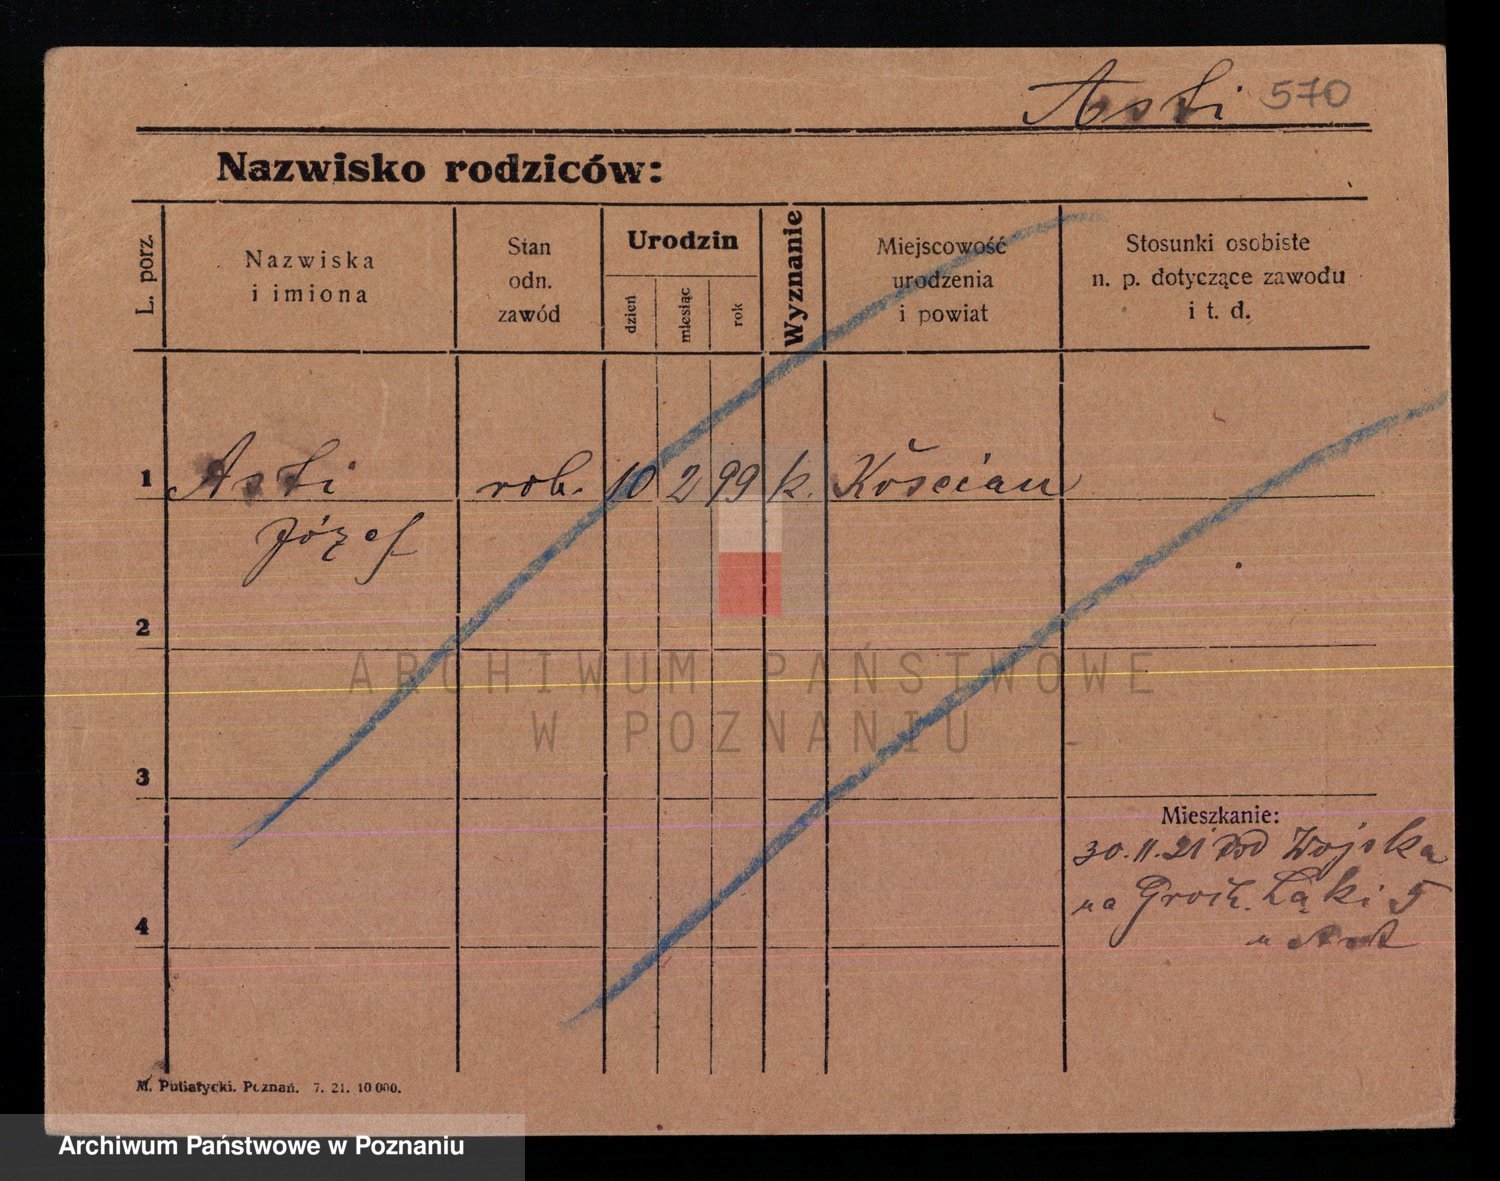 Asti 570
Nazwisko rodziców:
L. porz.
Nazwiska
i imiona
Stan
odn.
zawód
Urodzin
dzień
miesiąc
rok
Wyznanie
Miejscowość
urodzenia
i powiat
Stosunki osobiste
n. p. dotyczące zawodu
i t. d.
1 Asti rob. 10 2 99 k. Kościan
Józef
2
3
4
Mieszkanie:
30.11.21 od Wojska
na Groch. Łąki 5
ARCHIWUM PAŃSTWOWE
W POZNANIU
M. Putiatycki. Poznań. 7. 21. 10 000.
Archiwum Państwowe w Poznaniu